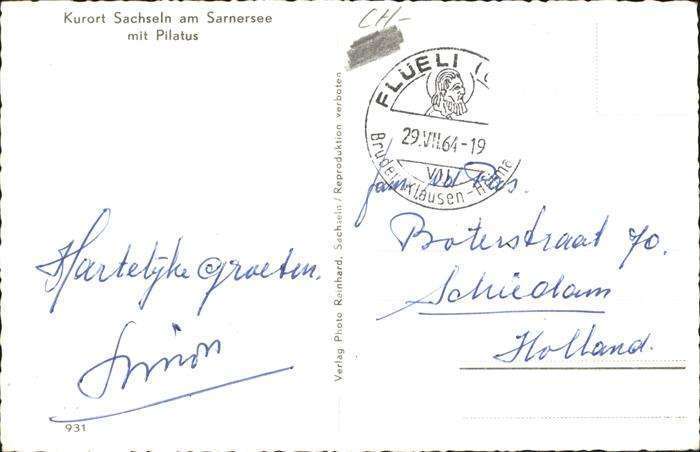 Kurort Sachseln am Sarnersee
mit Pilatus
CH-
FLÜELI
29.VII.64-19
Bruder-Klausen-Heimat
Verlag Photo Reinhard, Sachseln / Reproduktion verboten
Hartelijke groeten.
Simon
931
fam. v.d. Ras.
Boterstraat 70.
Schiedam
Holland.